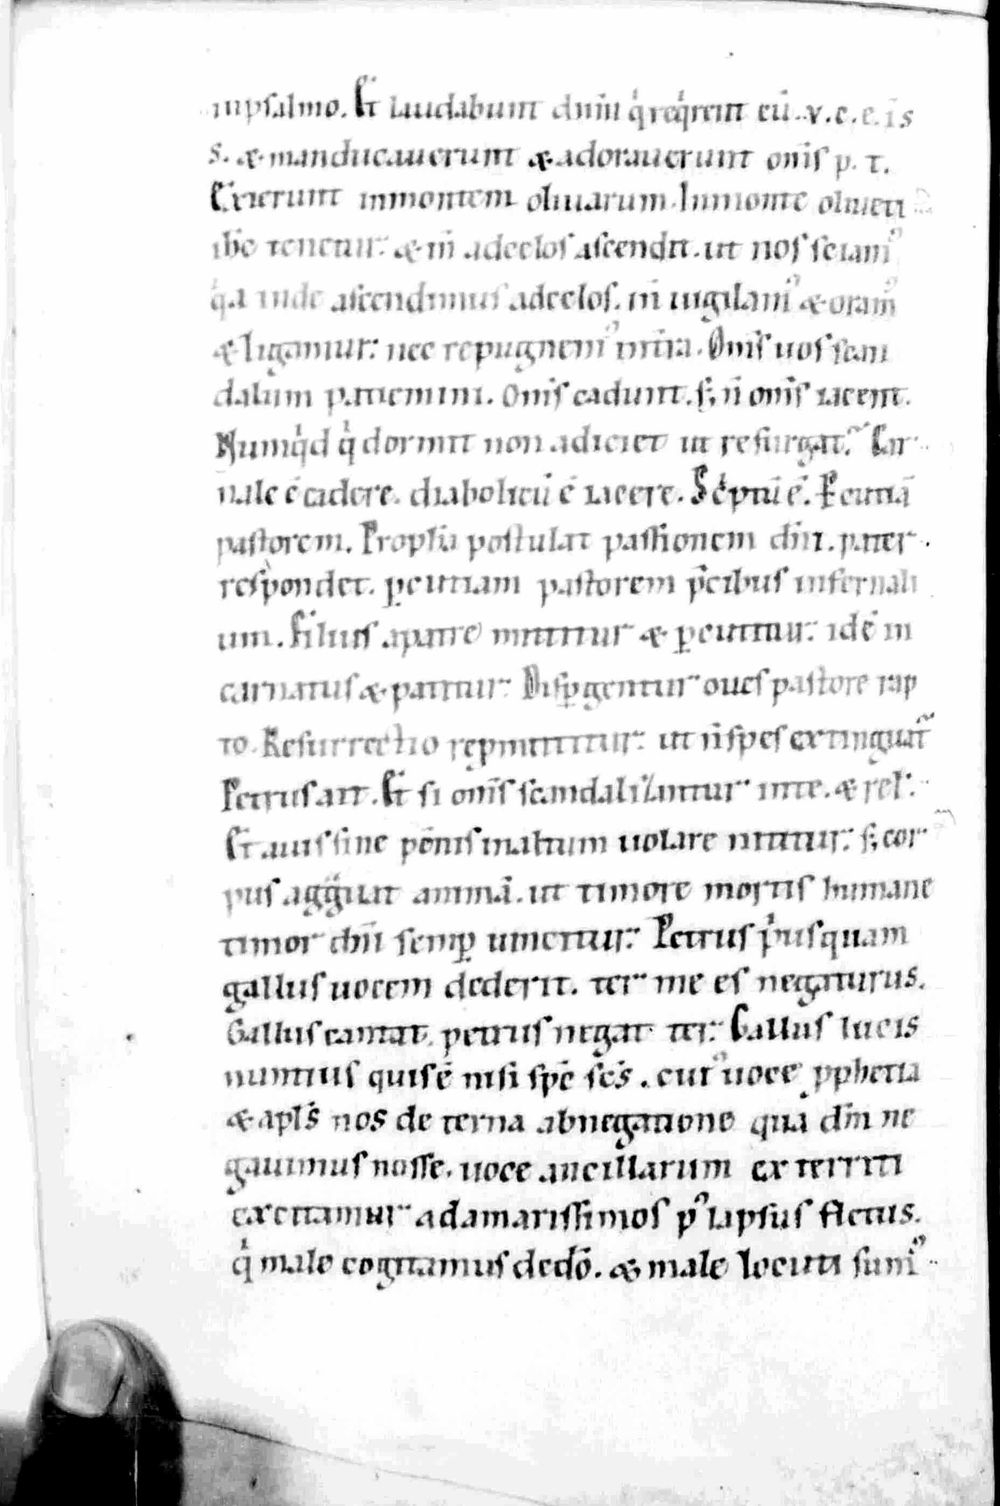 inpsalmo. Et laudabunt dnm̄ qͥ reqͥrent eū. v. c. e. i s
s. & manducauerunt & adorauerunt oms̄ p. t.
Exierunt inmontem oliuarum. Inmonte oliueti
ihc̄ tenetur. & in̄ adcelos ascendit. ut nos sciamꝰ
qͥa inde ascendimus adcelos. in̄ uigilamꝰ & oramꝰ
& ligamur. nec repugnemꝰ intra. Oms̄ uos scan
dalum patiemini. Oms̄ cadunt. s; n̄ oms̄ iacent.
Numqͥd qͥ dormit non adiciet ut resurgat. Car
nale ē cadere. diabolicū ē iacere. Scͥptū ē. Pcutiā
pastorem. Propħa postulat passionem dn̄i. pater
respondet. ꝑcutiam pastorem p̄cibus infernali
um. Filius apatre mittitur & ꝑcutitur. idē in
carnatus & patitur. Disꝑgentur oues pastore rap
to. Resurrectio repmittitur. ut n̄ spes extinguat̄
Petrus ait. Et si oms̄ scandalizantur inte. & rel.
Et auis sine pēnis inaltum uolare nititur. s; cor
pus aggͣuat animā. ut timore mortis humane
timor dn̄i semꝑ uincitur. Petrus pͥusquam
gallus uocem dederit. ter me es negaturus.
Gallus cantat. petrus negat ter. Gallus lucis
nuntius quis ē nisi spc̄ scs̄. cuiꝰ uoce pphetia
& apls̄ nos de terna abnegatione quā dm̄ ne
gauimus nosse. uoce ancillarum exterriti
excitamur adamarissimos pꝰ lapsus fletus.
qͥ male cogitamus dedō. & male locuti sumꝰ